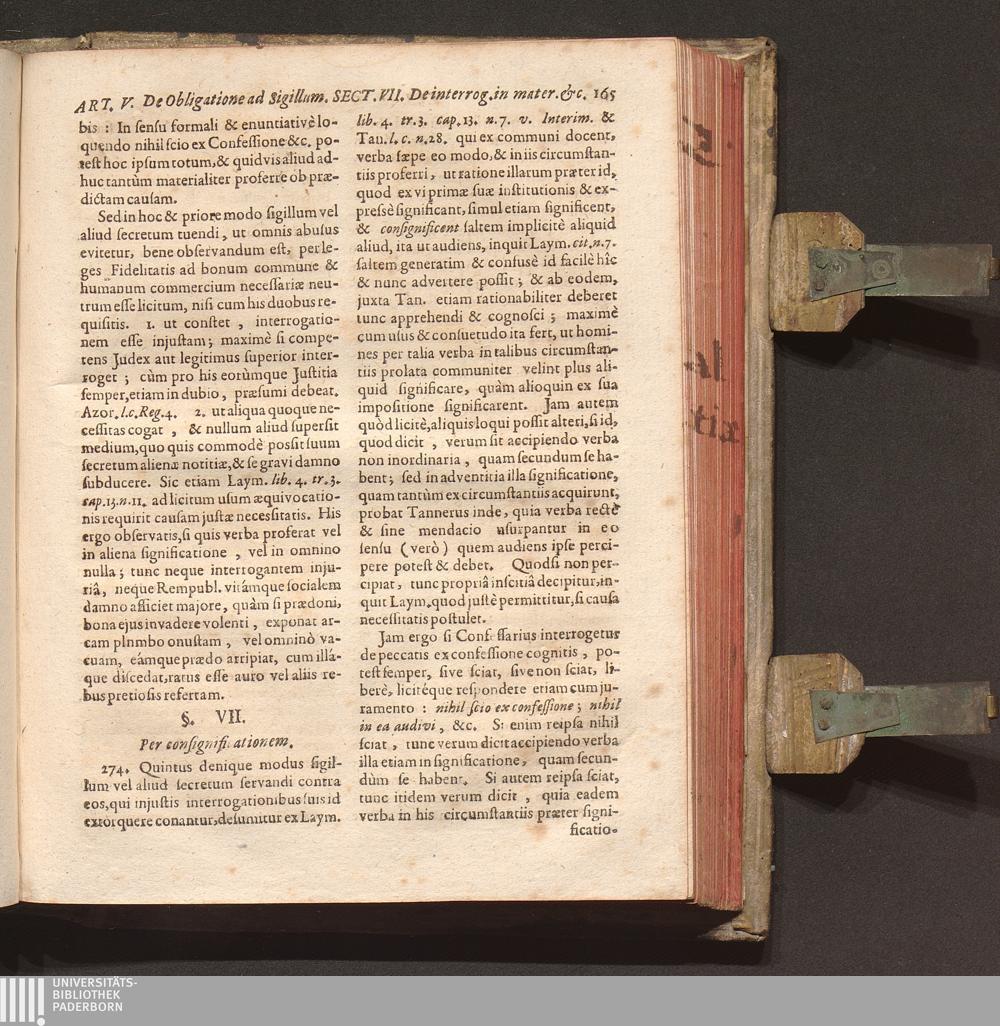 ART. V. De Obligatione ad Sigillum. SECT. VII. De interrog. in mater. &c. 165
bis : In sensu formali & enuntiativè lo-
quendo nihil scio ex Confessione &c. po-
test hoc ipsum totum, & quidvis aliud ad-
huc tantùm materialiter proferre ob præ-
dictam causam.
Sed in hoc & priore modo sigillum vel
aliud secretum tuendi, ut omnis abusus
evitetur, bene observandum est, per le-
ges Fidelitatis ad bonum commune &
humanum commercium necessariæ neu-
trum esse licitum, nisi cum his duobus re-
quisitis. 1. ut constet, interrogatio-
nem esse injustam; maximè si compe-
tens Judex aut legitimus superior inter-
roget ; cùm pro his eorùmque Justitia
semper, etiam in dubio, præsumi debeat.
Azor. l.c. Reg. 4. 2. ut aliqua quoque ne-
cessitas cogat , & nullum aliud supersit
medium, quo quis commodè possit suum
secretum alienæ notitiæ, & se gravi damno
subducere. Sic etiam Laym. lib. 4. tr. 3.
cap. 13. n. 11. ad licitum usum æquivocatio-
nis requirit causam justæ necessitatis. His
ergo observatis, si quis verba proferat vel
in aliena significatione , vel in omnino
nulla ; tunc neque interrogantem inju-
riâ, neque Rempubl. vitámque socialem
damno afficiet majore, quàm si prædoni,
bona ejus invadere volenti , exponat ar-
cam plnmbo onustam , vel omninò va-
cuam, eámque prædo arripiat, cum illá-
que discedat, ratus esse auro vel aliis re-
bus pretiosis refertam.
§. VII.
Per consignificationem.
274. Quintus denique modus sigil-
lum vel aliud secretum servandi contra
eos, qui injustis interrogationibus suis id
extorquere conantur, desumitur ex Laym.
lib. 4. tr. 3. cap. 13. n. 7. v. Interim. &
Tan. l. c. n. 28. qui ex communi docent,
verba sæpe eo modo, & in iis circumstan-
tiis proferri, ut ratione illarum præter id,
quod ex vi primæ suæ institutionis & ex-
pressè significant, simul etiam significent,
& consignificent saltem implicitè aliquid
aliud, ita ut audiens, inquit Laym. cit. n. 7.
saltem generatim & confusè id facilè hîc
& nunc advertere possit ; & ab eodem,
juxta Tan. etiam rationabiliter deberet
tunc apprehendi & cognosci ; maximè
cum usus & consuetudo ita fert, ut homi-
nes per talia verba in talibus circumstan-
tiis prolata communiter velint plus ali-
quid significare, quàm alioquin ex sua
impositione significarent. Jam autem
quòd licitè, aliquis loqui possit alteri, si id,
quod dicit , verum sit accipiendo verba
non inordinaria , quam secundum se ha-
bent ; sed in adventitia illa significatione,
quam tantùm ex circumstantiis acquirunt,
probat Tannerus inde, quia verba rectè
& sine mendacio usurpantur in eo
sensu ( verò ) quem audiens ipse perci-
pere potest & debet. Quodsi non per-
cipiat , tunc propriâ inscitiâ decipitur, in-
quit Laym. quod justè permittitur, si causa
necessitatis postulet.
Jam ergo si Confessarius interrogetur
de peccatis ex confessione cognitis , po-
test semper, sive sciat, sive non sciat, li-
berè, licitéque respondere etiam cum ju-
ramento : nihil scio ex confessione ; nihil
in ea audivi , &c. Si enim reipsa nihil
sciat , tunc verum dicit accipiendo verba
illa etiam in significatione, quam secun-
dùm se habent. Si autem reipsa sciat,
tunc itidem verum dicit , quia eadem
verba in his circumstantiis præter signi-
ficatio-
UNIVERSITÄTS-
BIBLIOTHEK
PADERBORN